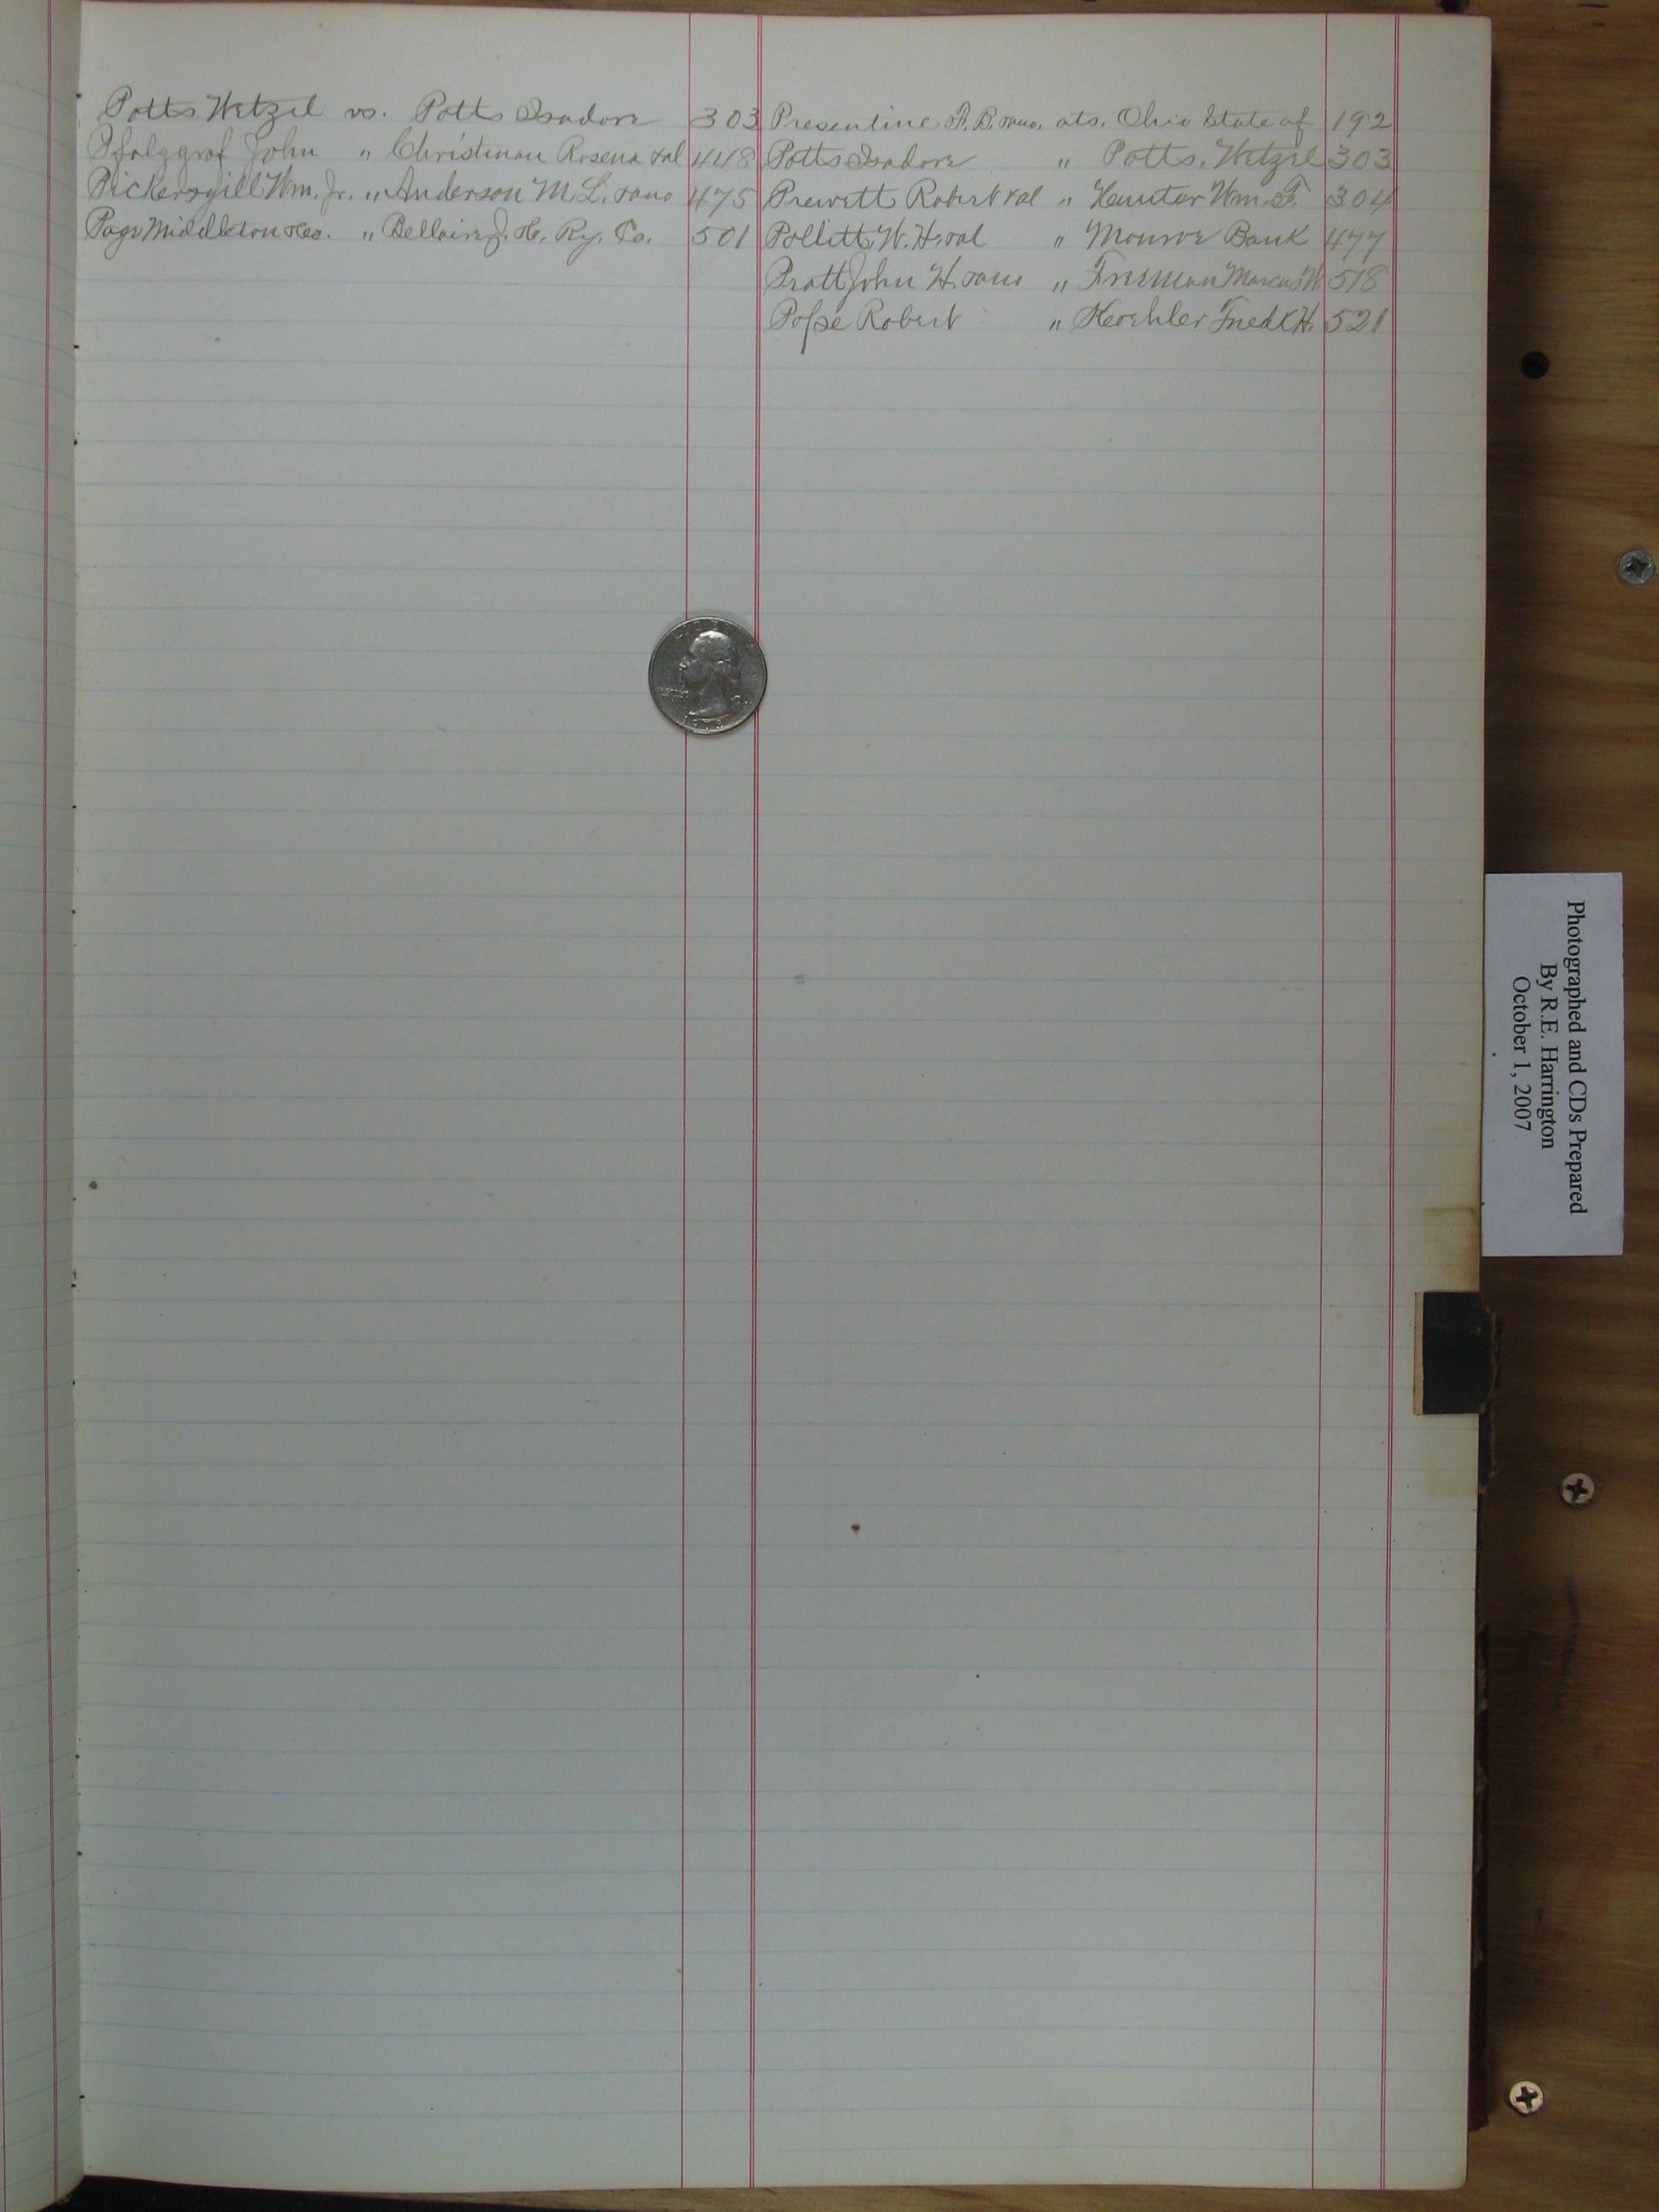 Potts Wetzel vs. Potts Isadore 303
Pfalzgraf John " Christman Rosena &al 448
Pickersgill Wm. Jr. " Anderson M. L. &ano 475
Page Middleton &co. " Bellaire Ry. Co. 501
Presentine &ano. ats. Ohio State of 192
Potts Isadore " Potts, Wetzel 303
Prewett Robert &al " Wm. F. 304
Pollitt W. H. &al " Monroe Bank 477
Pratt John H. &ano " Freeman Marcus W. 518
Robert " Koehler Fredk H. 521
Photographed and CDs Prepared
By R.E. Harrington
October 1, 2007